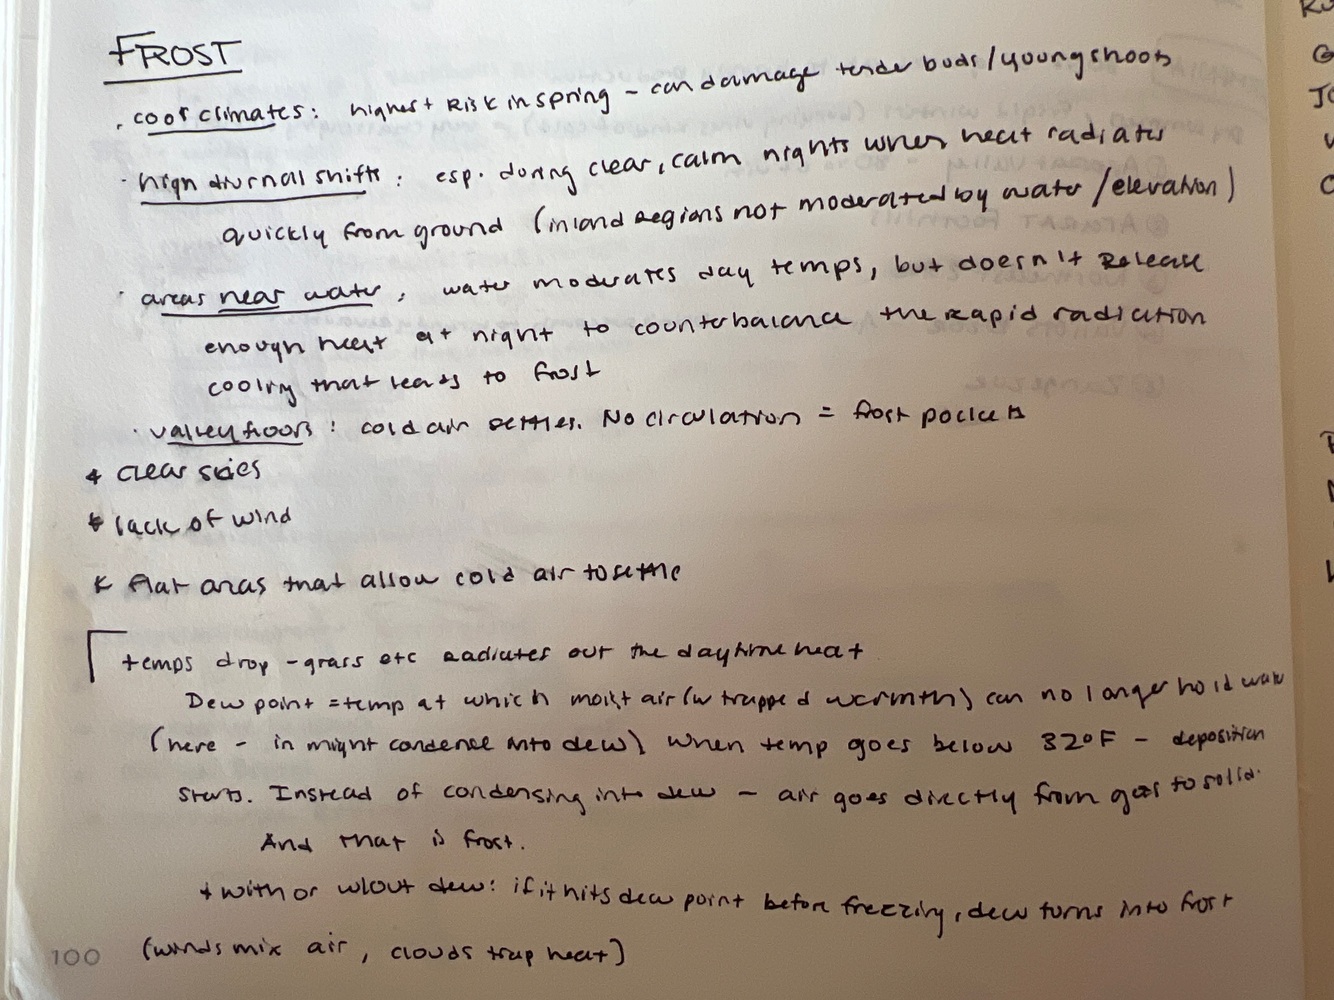 FROST
· cool climates: highest Risk in spring - can damage tender buds/young shoots
· high diurnal shifts: esp. during clear, calm nights when heat radiates
quickly from ground (inland Regions not moderated by water/elevation)
· areas near water: water moderates day temps, but doesn't Release
enough heat at night to counterbalance the rapid radiation
cooling that leads to frost
· valley floors: cold air settles. No circulation = frost pockets
* clear skies
* lack of wind
* flat areas that allow cold air to settle
temps drop - grass etc radiates out the daytime heat
Dew point = temp at which moist air (w trapped warmth) can no longer hold water
(here - in might condence into dew) when temp goes below 32°F - deposition
starts. Instead of condensing into dew - air goes directly from gas to solid.
And that is frost.
* with or w/out dew: if it hits dew point before freezing, dew turns into frost
(winds mix air, clouds trap heat)
100